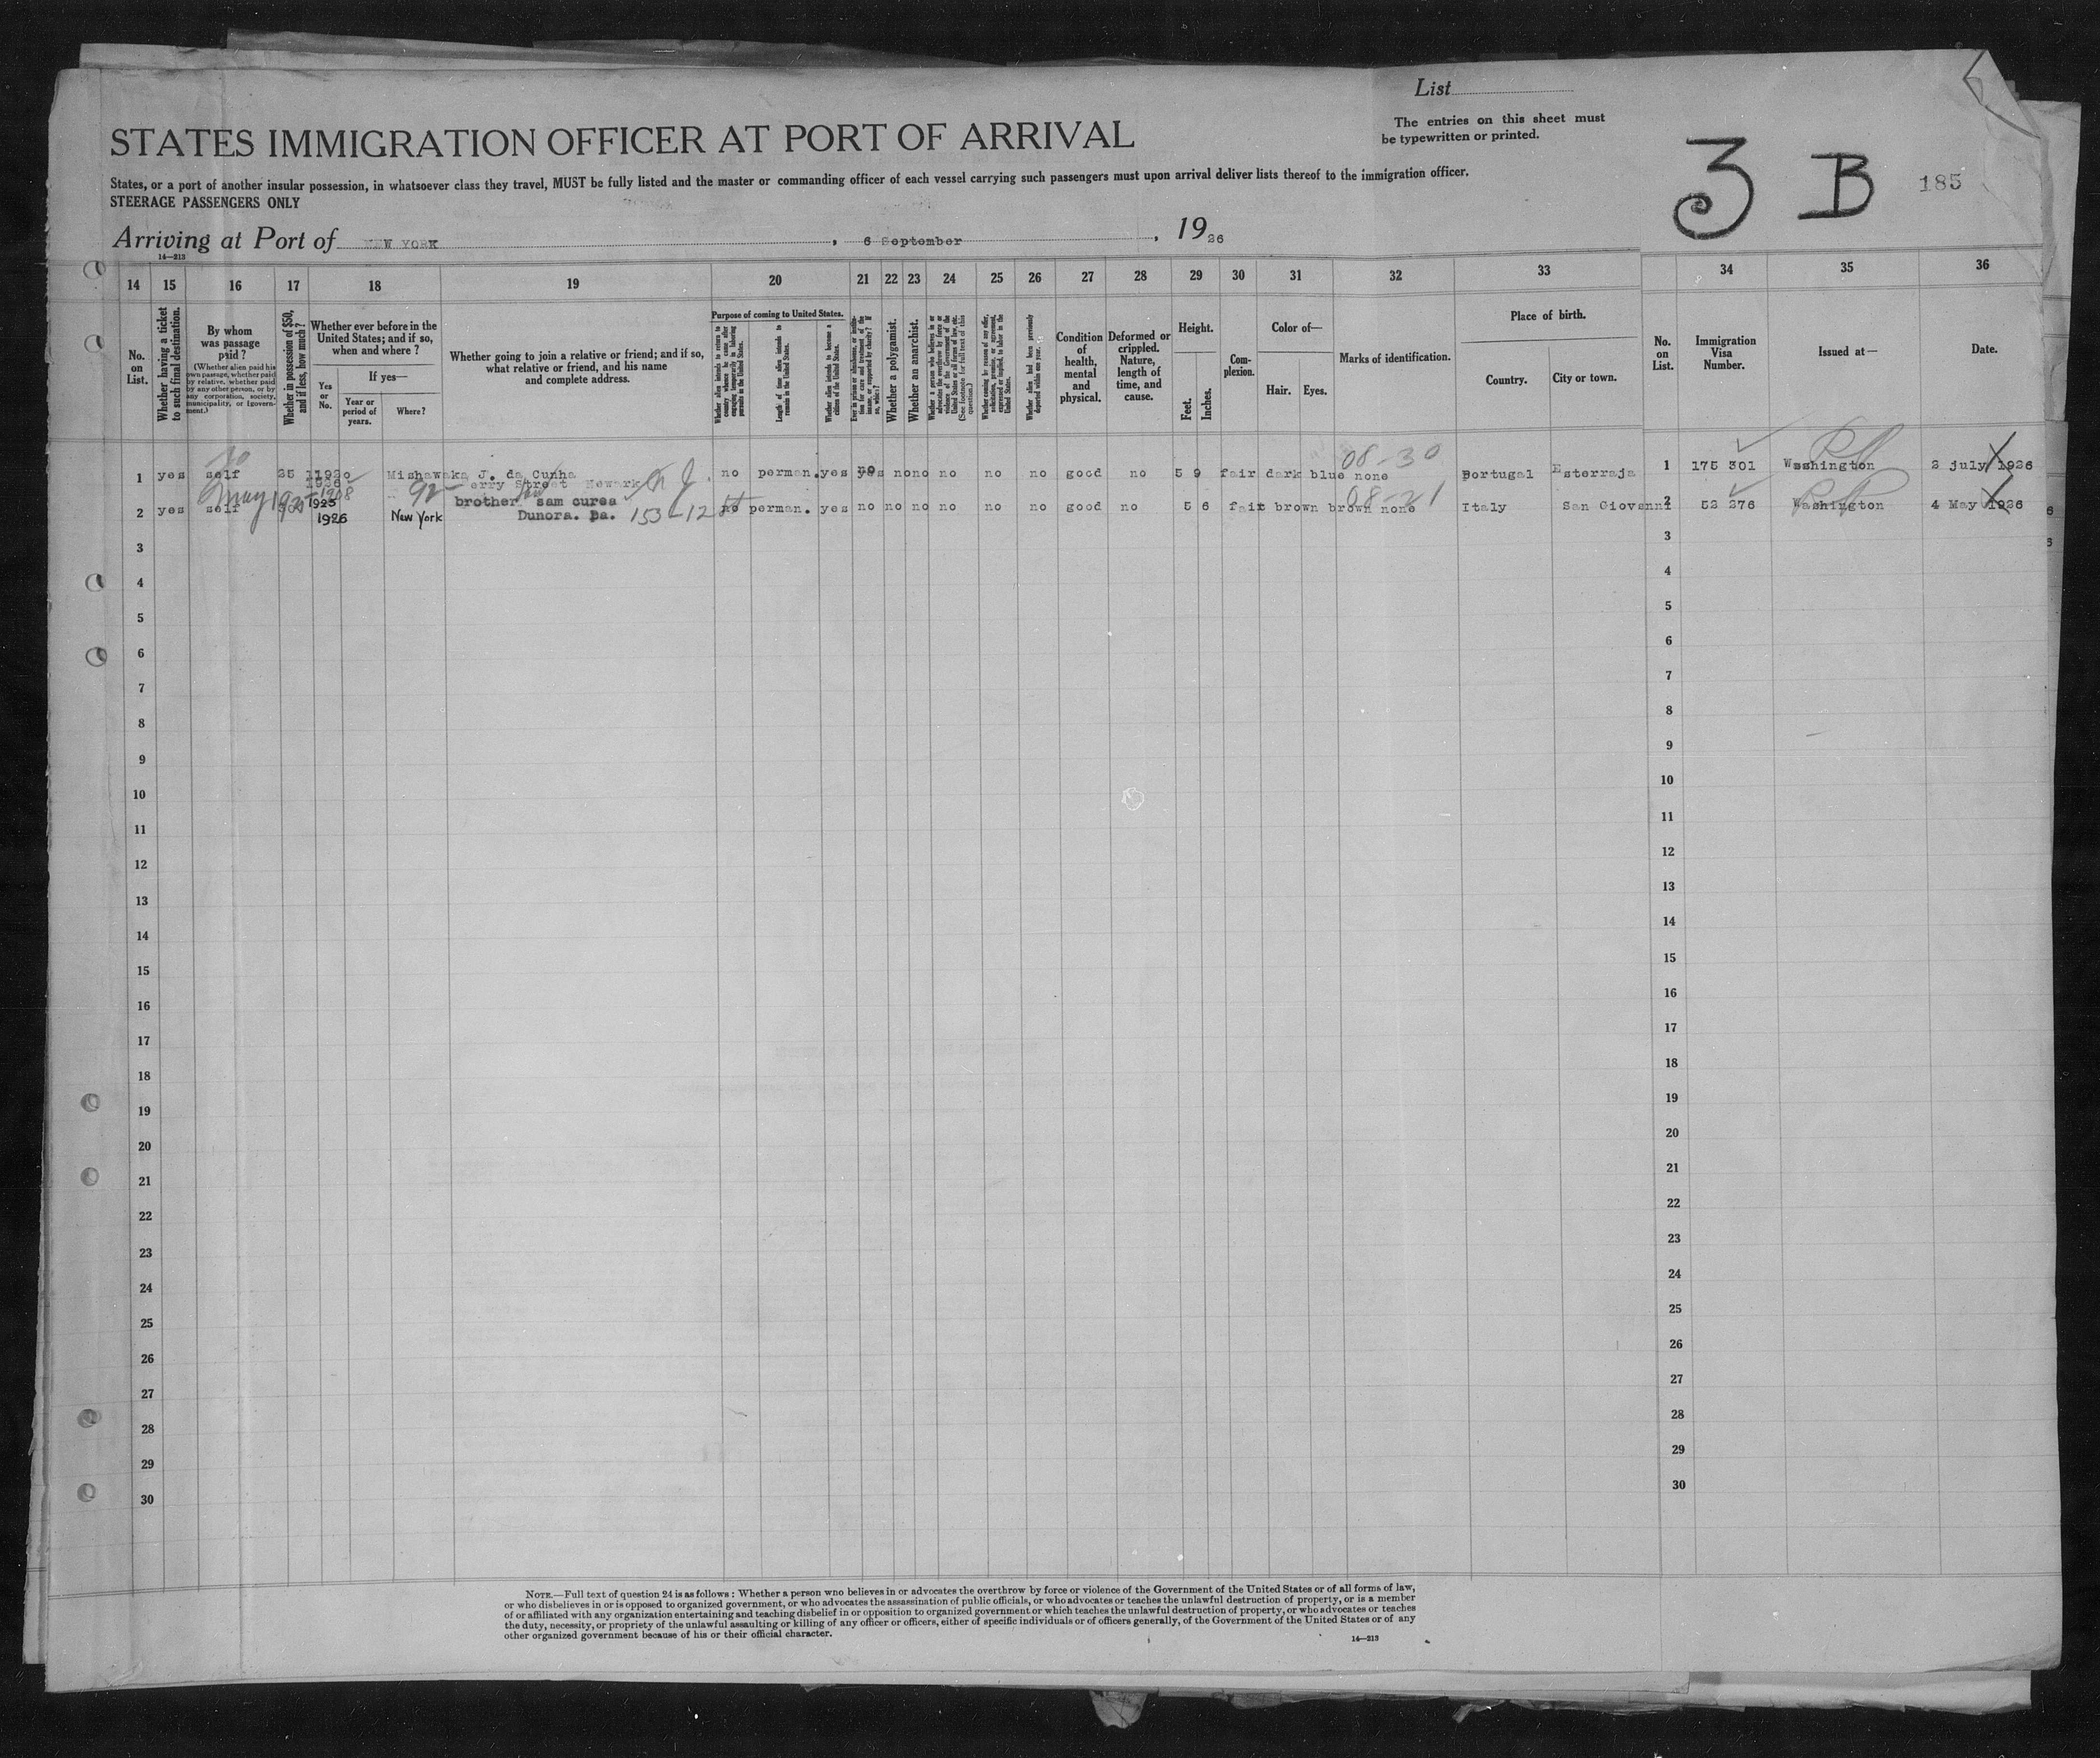 List
The entries on this sheet must
be typewritten or printed.
STATES IMMIGRATION OFFICER AT PORT OF ARRIVAL
3 B
185
States, or a port of another insular possession, in whatsoever class they travel, MUST be fully listed and the master or commanding officer of each vessel carrying such passengers must upon arrival deliver lists thereof to the immigration officer.
STEERAGE PASSENGERS ONLY
Arriving at Port of NEW YORK, 6 September, 1926
14—213
14 15 16 17 18 19 20 21 22 23 24 25 26 27 28 29 30 31 32 33 34 35 36
No. on List.
Whether having a ticket to such final destination.
By whom was passage paid?
(Whether alien paid his own passage, whether paid by relative, whether paid by any other person, or by any corporation, society, municipality, or government.)
Whether in possession of $50, and if less, how much?
Whether ever before in the United States; and if so, when and where?
Yes or No.
If yes—
Year or period of years.
Where?
Whether going to join a relative or friend; and if so, what relative or friend, and his name and complete address.
Purpose of coming to United States.
Whether alien intends to return to country whence he came after engaging temporarily in laboring pursuits in the United States.
Length of time alien intends to remain in the United States.
Whether alien intends to become a citizen of the United States.
Ever in prison or almshouse, or institution for care and treatment of the insane, or supported by charity? If so, which?
Whether a polygamist.
Whether an anarchist.
Whether a person who believes in or advocates the overthrow by force or violence of the Government of the United States or all forms of law, etc. (See footnote for full text of this question.)
Whether coming by reason of any offer, solicitation, promise, or agreement, expressed or implied, to labor in the United States.
Whether alien had been previously deported within one year.
Condition of health, mental and physical.
Deformed or crippled. Nature, length of time, and cause.
Height.
Feet.
Inches.
Complexion.
Color of—
Hair.
Eyes.
Marks of identification.
Place of birth.
Country.
City or town.
No. on List.
Immigration Visa Number.
Issued at—
Date.
08-30
1 yes self 25 1920 Mishawaka J. da Cunha no perman. yes yes no no no no no no good no 5 9 fair dark blue none Portugal Esterraja 1 175 301 Washington 2 july 1926
1926 erry Street Newark N J.
May 1925 1908 92 08-21
2 yes self 1925 brother sam curea no perman. yes no no no no no no good no 5 6 fair brown brown none Italy San Giovenni 2 52 276 Washington 4 May 1926
1926 New York Dunora. Pa. 153-128
3 3
4 4
5 5
6 6
7 7
8 8
9 9
10 10
11 11
12 12
13 13
14 14
15 15
16 16
17 17
18 18
19 19
20 20
21 21
22 22
23 23
24 24
25 25
26 26
27 27
28 28
29 29
30 30
NOTE.—Full text of question 24 is as follows: Whether a person who believes in or advocates the overthrow by force or violence of the Government of the United States or of all forms of law,
or who disbelieves in or is opposed to organized government, or who advocates the assassination of public officials, or who advocates or teaches the unlawful destruction of property, or is a member
of or affiliated with any organization entertaining and teaching disbelief in or opposition to organized government or which teaches the unlawful destruction of property, or who advocates or teaches
the duty, necessity, or propriety of the unlawful assaulting or killing of any officer or officers, either of specific individuals or of officers generally, of the Government of the United States or of any
other organized government because of his or their official character.
14—213